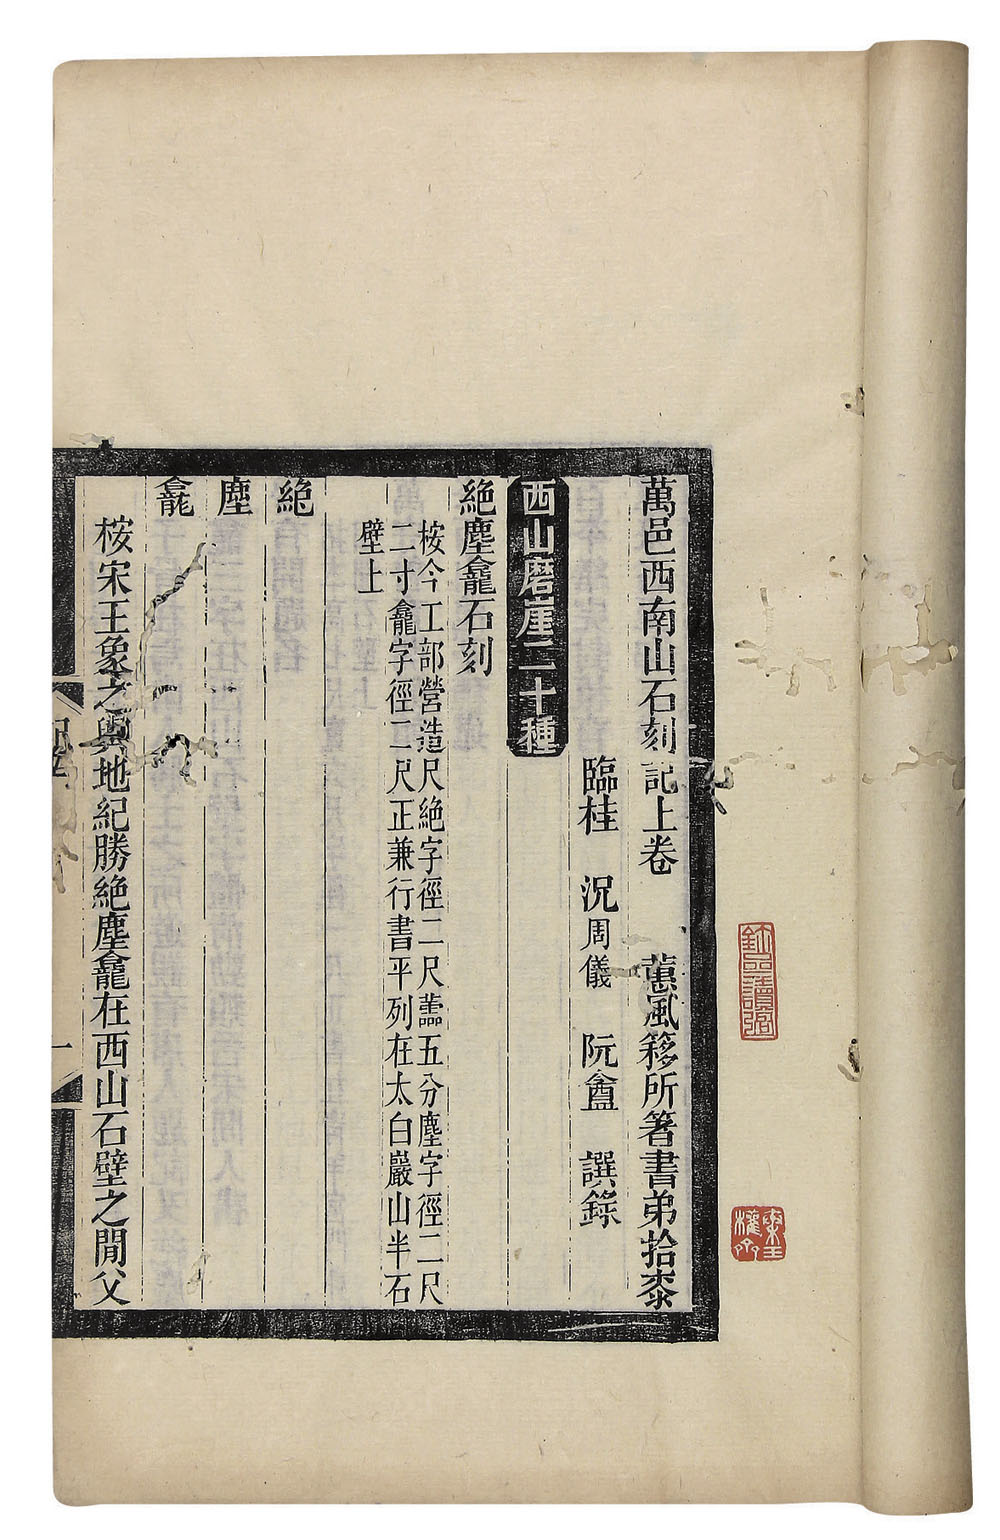 萬邑西南山石刻記上卷　蕙風簃所箸書弟拾桼
臨桂　況周儀　阮盦　譔錄
西山磨崖二十種
絕塵龕石刻
桉今工部營造尺絕字徑二尺蠹五分塵字徑二尺
二寸龕字徑二尺正兼行書平列在太白巖山半石
壁上
絕
塵
龕
桉宋王象之輿地紀勝絕塵龕在西山石壁之閒父
一